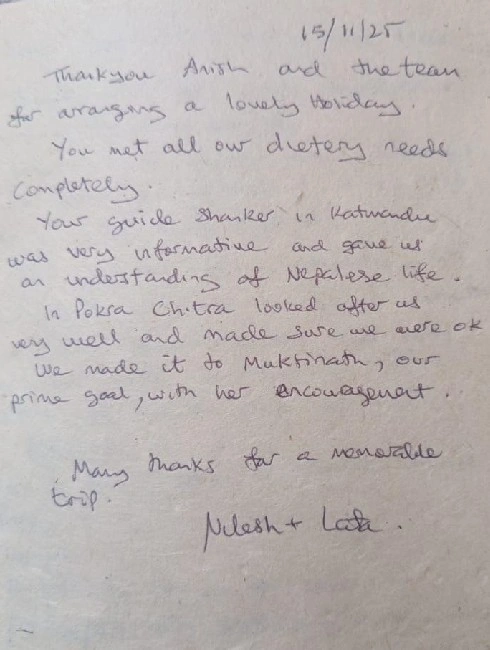 15/11/25
Thankyou Anish and the team
for arranging a lovely Holiday.
You met all our dietery needs
Completely.
Your guide Shanker in Katmandu
was very informative and gave us
an understanding of Nepalese life.
In Pokra Chitra looked after us
very well and made sure we were ok
We made it to Muktinath, our
prime goal, with her encouragement.
Many thanks for a memorable
trip.
Nilesh + Lata.